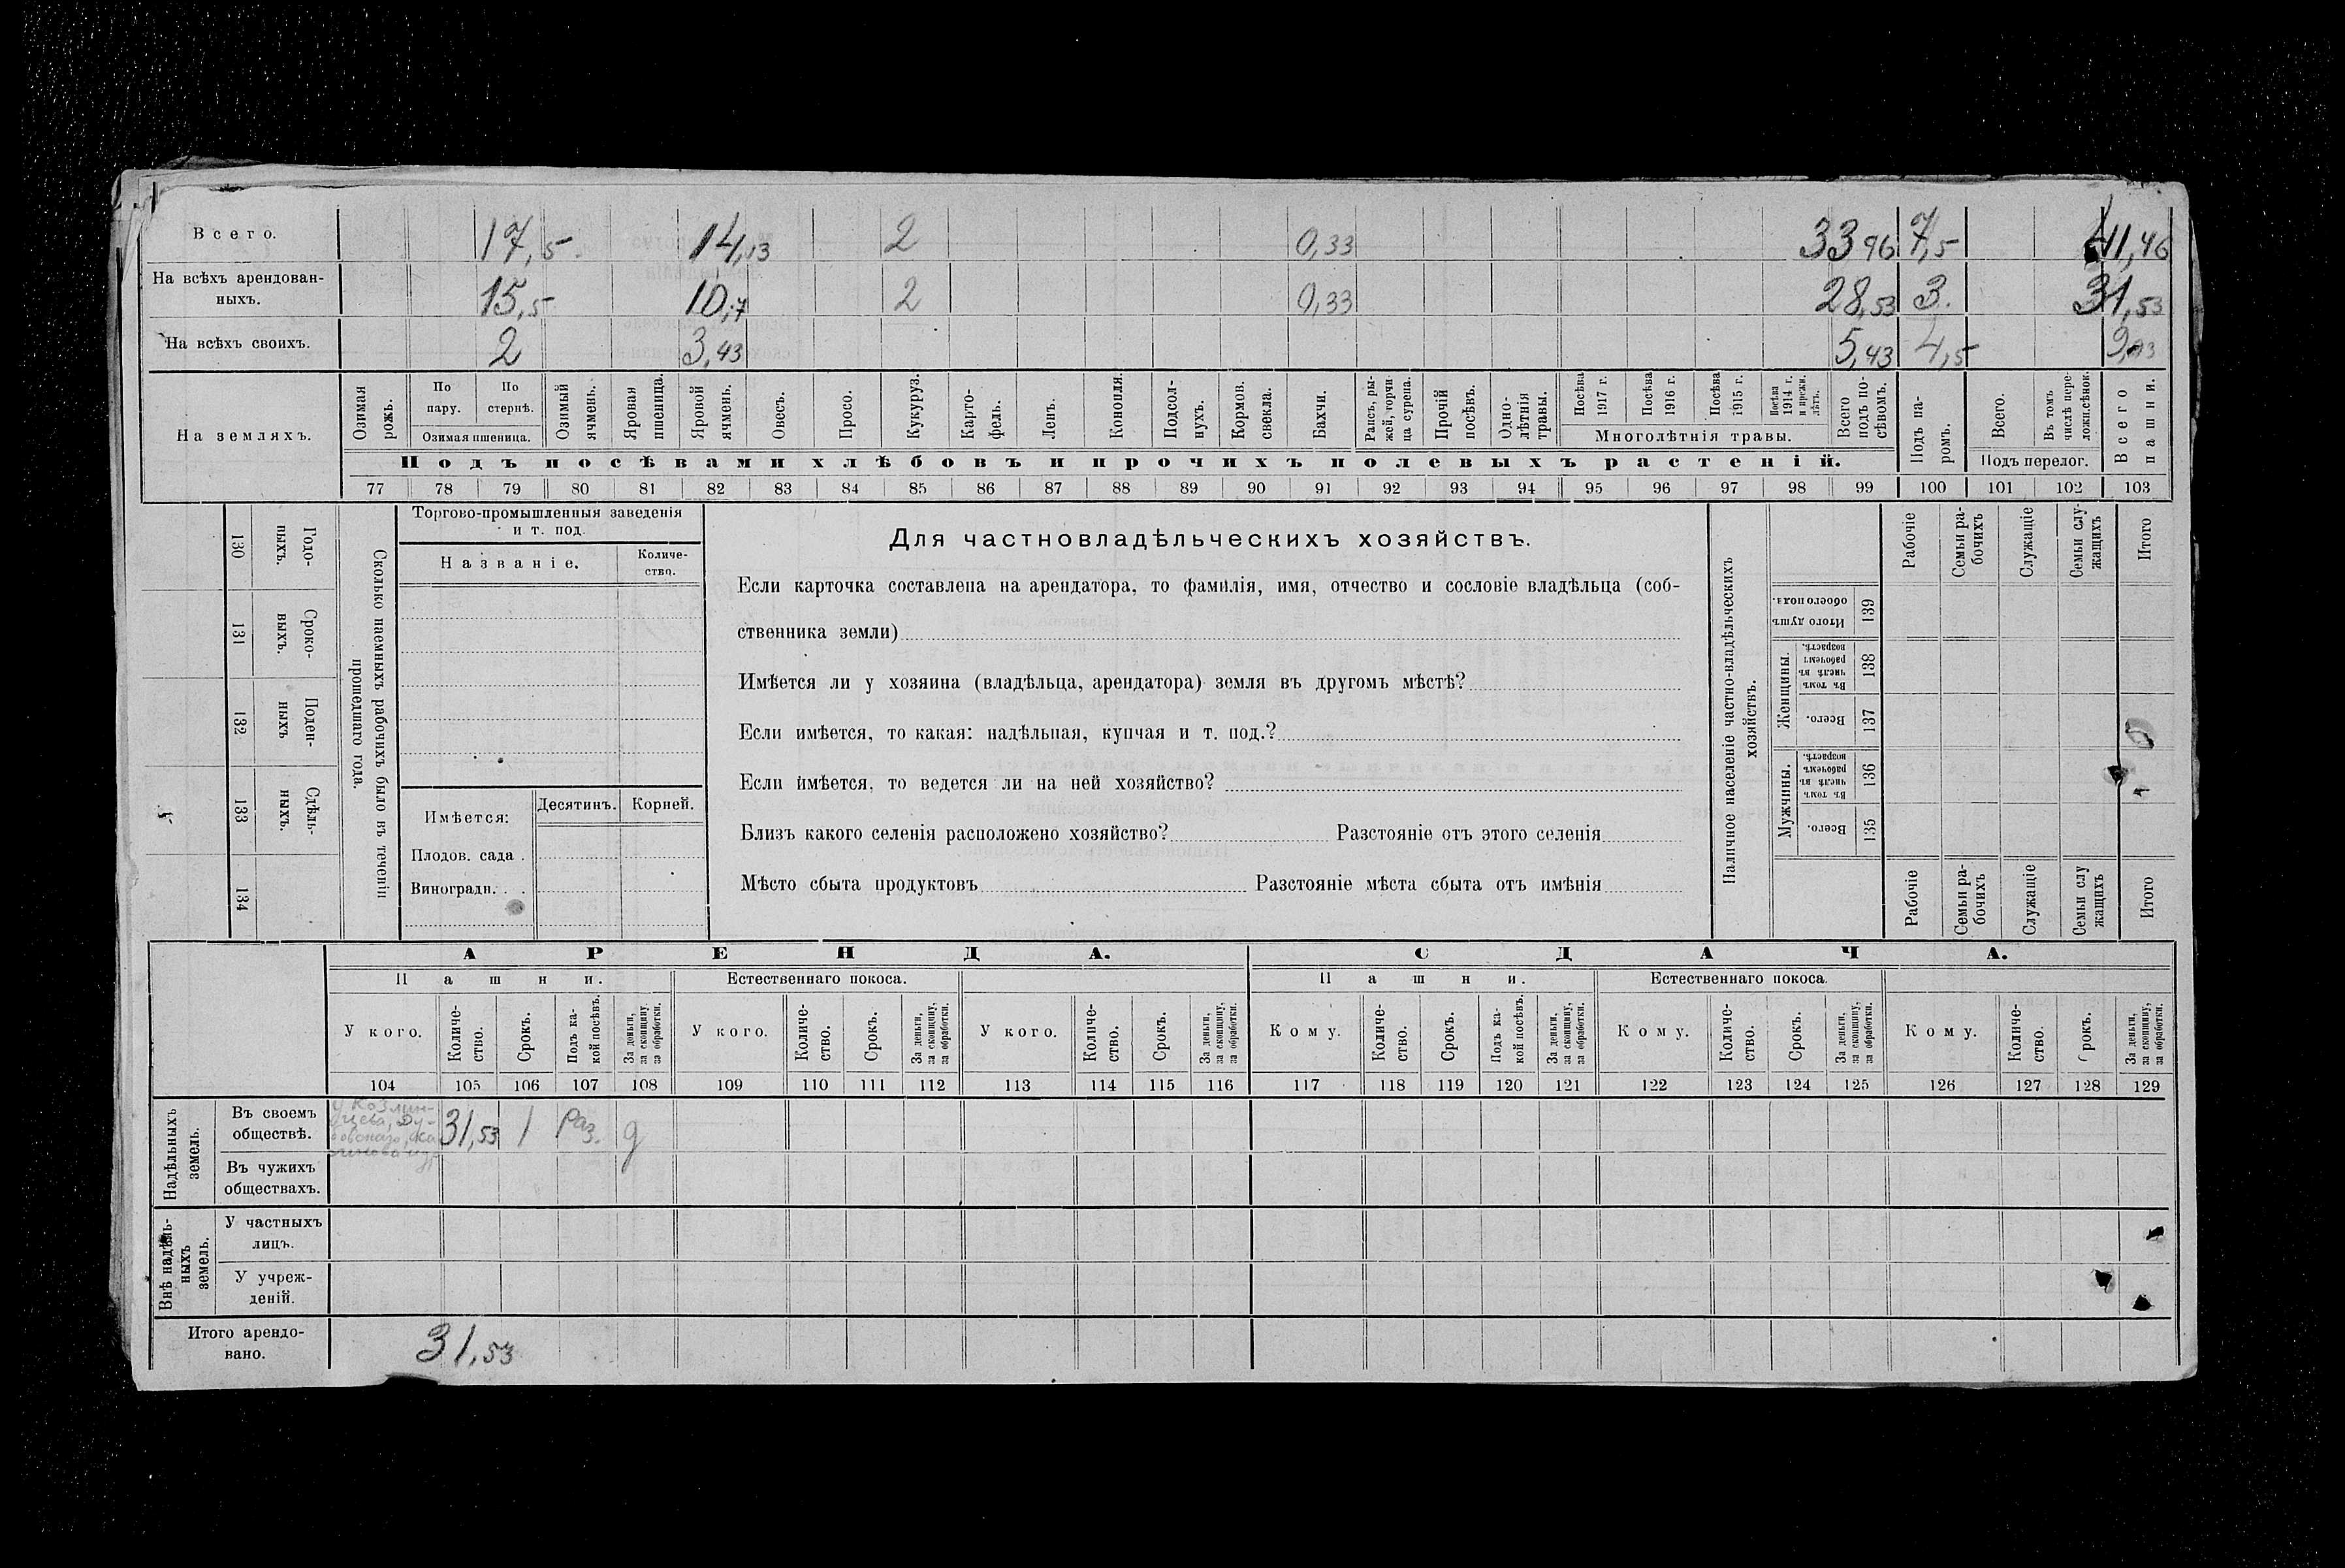 Всего. 17,5 14,13 2 0,33 33 96 7,5 41,46
На всѣхъ арендован-
ныхъ. 15,5 10,7 2 0,33 28,53 3. 31,53
На всѣхъ своихъ. 2 3,43 5,43 4,5
На земляхъ.
Озимая рожь.
По пару.
По стернѣ.
Озимая пшеница.
Озимый ячмень.
Яровая пшеница.
Яровой ячмень.
Овесъ.
Просо.
Кукуруз.
Карто-
фель.
Ленъ.
Конопля.
Подсол-
нухъ.
Кормов. свекла.
Бахчи.
Рапсъ, ры-
жей, горчи
ца сурепа.
Прочій посѣвъ.
Одно-
лѣтнія
травы.
Посѣва 1917 г.
Посѣва 1916 г.
Посѣва 1915 г.
Посѣва 1914 г. и прежн. лѣтъ.
Многолѣтнія травы.
Всего подъ по-
сѣвомъ.
Подъ па-
ромъ.
Всего.
Въ томъ числѣ пере-
ложн.сѣнок.
Подъ перелог.
Всего пашни.
Подъ посѣвами хлѣбовъ и прочихъ полевыхъ растеній.
77 78 79 80 81 82 83 84 85 86 87 88 89 90 91 92 93 94 95 96 97 98 99 100 101 102 103
130 Годо-
ныхъ.
131 Сроко-
выхъ.
132 Поден-
ныхъ
133 Сдѣль-
ныхъ.
134
Сколько наемныхъ рабочихъ было въ теченіи
прошедшаго года.
Торгово-промышленныя заведенія
и т. под.
Названіе.
Количе-
ство.
Имѣется: Десятинъ. Корней.
Плодов. сада .
Виноградн. . .
Для частновладѣльческихъ хозяйствъ.
Если карточка составлена на арендатора, то фамилія, имя, отчество и сословіе владѣльца (соб-
ственника земли)
Имѣется ли у хозяина (владѣльца, арендатора) земля въ другомъ мѣстѣ?
Если имѣется, то какая: надѣльная, купчая и т. под.?
Если имѣется, то ведется ли на ней хозяйство?
Близъ какого селенія расположено хозяйство? Разстояніе отъ этого селенія
Мѣсто сбыта продуктовъ Разстояніе мѣста сбыта отъ имѣнія
Наличное населеніе частно-владѣльческихъ
хозяйствъ.
Рабочіе
Семьи ра-
бочихъ
Служащіе
Семьи слу-
жащихъ
Итого
Итого душъ обоего пола. 139
Женщины.
Въ томъ числѣ въ рабочемъ возрастѣ. 138
Всего. 137
Мужчины.
Въ томъ числѣ въ рабочемъ возрастѣ. 136
Всего. 135
Рабочіе
Семьи ра-
бочихъ
Служащіе
Семьи слу
жащихъ
Итого
АРЕНДА. СДАЧА.
Пашни. Естественнаго покоса. Пашни. Естественнаго покоса.
У кого.
Количе-
ство.
Срокъ.
Подъ ка-
кой посѣвъ.
За деньги,
за скопщину,
за обработки.
У кого.
Количе-
ство.
Срокъ.
За деньги,
за скопщину,
за обработки.
У кого.
Количе-
ство.
Срокъ.
За деньги,
за скопщину,
за обработки.
Кому.
Количе-
ство.
Срокъ.
Подъ ка-
кой посѣвъ.
За деньги,
за скопщину,
за обработки.
Кому.
Количе-
ство.
Срокъ.
За деньги,
за скопщину,
за обработки.
Кому.
Количе-
ство.
рокъ.
За деньги,
за скопщину,
за обработки.
104 105 106 107 108 109 110 111 112 113 114 115 116 117 118 119 120 121 122 123 124 125 126 127 128 129
Надѣльныхъ
земель.
Въ своемъ
обществѣ. 31,53 1 Раз. д
Въ чужихъ
обществахъ.
Внѣ надѣль-
ныхъ
земель.
У частныхъ
лицъ.
У учреж-
деній.
Итого арендо-
вано. 31,53